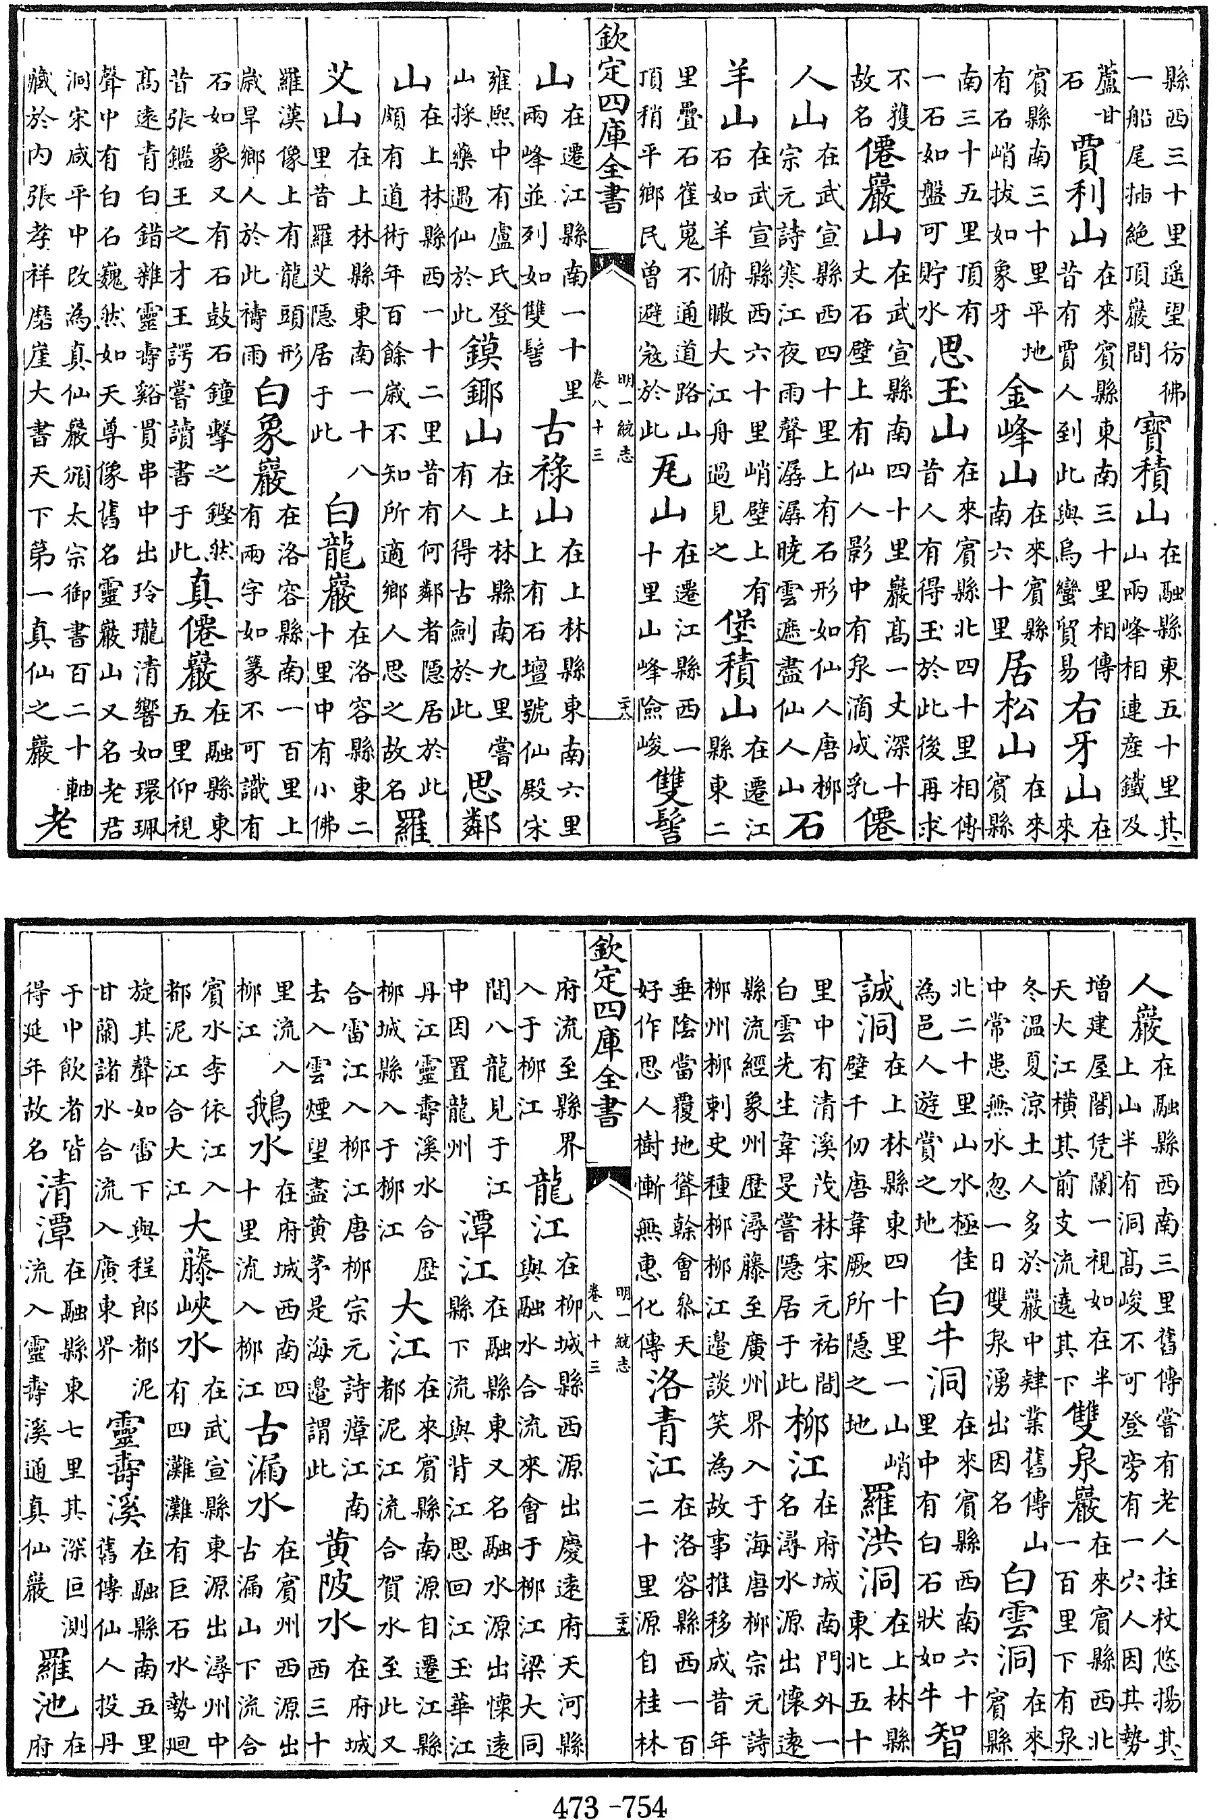 縣西三十里遥望彷彿一船尾插絶頂巖間寳積山在融縣東五十里其山兩峰相連産鐵及
蘆甘石賈利山在來賓縣東南三十里相傳昔有賈人到此與烏蠻貿易右牙山在來
賓縣南三十里平地有石峭拔如象牙金峰山在來賓縣南六十里居松山在來賓縣
南三十五里頂有一石如盤可貯水思玉山在來賓縣北四十里相傳昔人有得玉於此後再求
不獲故名僊巖山在武宣縣南四十里巖高一丈深十丈石壁上有仙人影中有泉滴成乳僊
人山在武宣縣西四十里上有石形如仙人唐柳宗元詩寒江夜雨聲潺潺曉雲遮盡仙人山石
羊山在武宣縣西六十里峭壁上有石如羊俯瞰大江舟過見之堡積山在遷江縣東二
里疊石崔嵬不通道路山頂稍平鄉民曾避寇於此瓦山在遷江縣西一十里山峰險峻雙髻
欽定四庫全書 明一統志 卷八十三
山在遷江縣南一十里兩峰並列如雙髻古祿山在上林縣東南六里上有石壇號仙殿宋
雍熙中有盧氏登山採藥遇仙於此鏌鎁山在上林縣南九里嘗有人得古劍於此思鄰
山在上林縣西一十二里昔有何鄰者隱居於此頗有道術年百餘歲不知所適鄉人思之故名羅
艾山在上林縣東南一十八里昔羅艾隱居于此白龍巖在洛容縣東二十里中有小佛
羅漢像上有龍頭形歲旱鄉人於此禱雨白象巖在洛容縣南一百里上有兩字如篆不可識有
石如象又有石鼓石鐘擊之鏗然昔張鑑王之才王諤嘗讀書于此真僊巖在融縣東五里仰視
高遠青白錯雜靈壽谿貫串中出玲瓏清響如環珮聲中有白石巍然如天尊像舊名靈巖山又名老君
洞宋咸平中改為真仙巖頒太宗御書百二十軸藏於内張孝祥磨崖大書天下第一真仙之巖老
人巖在融縣西南三里舊傳嘗有老人拄杖悠揚其上山半有洞高峻不可登旁有一穴人因其勢
增建屋閣凭闌一視如在半天大江横其前支流遶其下雙泉巖在來賓縣西北一百里下有泉
冬温夏凉土人多於巖中肄業舊傳山中常患無水忽一日雙泉湧出因名白雲洞在來賓縣
北二十里山水極佳為邑人遊賞之地白牛洞在來賓縣西南六十里中有白石狀如牛智
誠洞在上林縣東四十里一山峭壁千仞唐韋厥所隱之地羅洪洞在上林縣東北五十
里中有清溪茂林宋元祐間白雲先生韋旻嘗隱居于此柳江在府城南門外一名潯水源出懷遠
縣流經象州歷潯藤至廣州界入于海唐柳宗元詩柳州柳刺史種柳柳江邉談笑為故事推移成昔年
垂陰當覆地聳幹會叅天好作思人樹慚無惠化傳洛青江在洛容縣西一百二十里源自桂林
欽定四庫全書 明一統志 卷八十三
府流至縣界入于柳江龍江在柳城縣西源出慶遠府天河縣與融水合流來會于柳江梁大同
間八龍見于江中因置龍州潭江在融縣東又名融水源出懷遠縣下流與背江思回江玉華江
丹江靈壽溪水合歴柳城縣入于柳江大江在來賓縣南源自遷江縣都泥江流合賀水至此又
合雷江入柳江唐柳宗元詩瘴江南去入雲煙望盡黄茅是海邉謂此黄陂水在府城西三十
里流入柳江鵝水在府城西南四十里流入柳江古漏水在賓州西源出古漏山下流合
賓水李依江入都泥江合大江大藤峽水在武宣縣東源出潯州中有四灘灘有巨石水勢廻
旋其聲如雷下與程郎都泥甘蘭諸水合流入廣東界靈壽溪在融縣南五里舊傳仙人投丹
于中飲者皆得延年故名清潭在融縣東七里其深叵測流入靈壽溪通真仙巖羅池在府
473-754